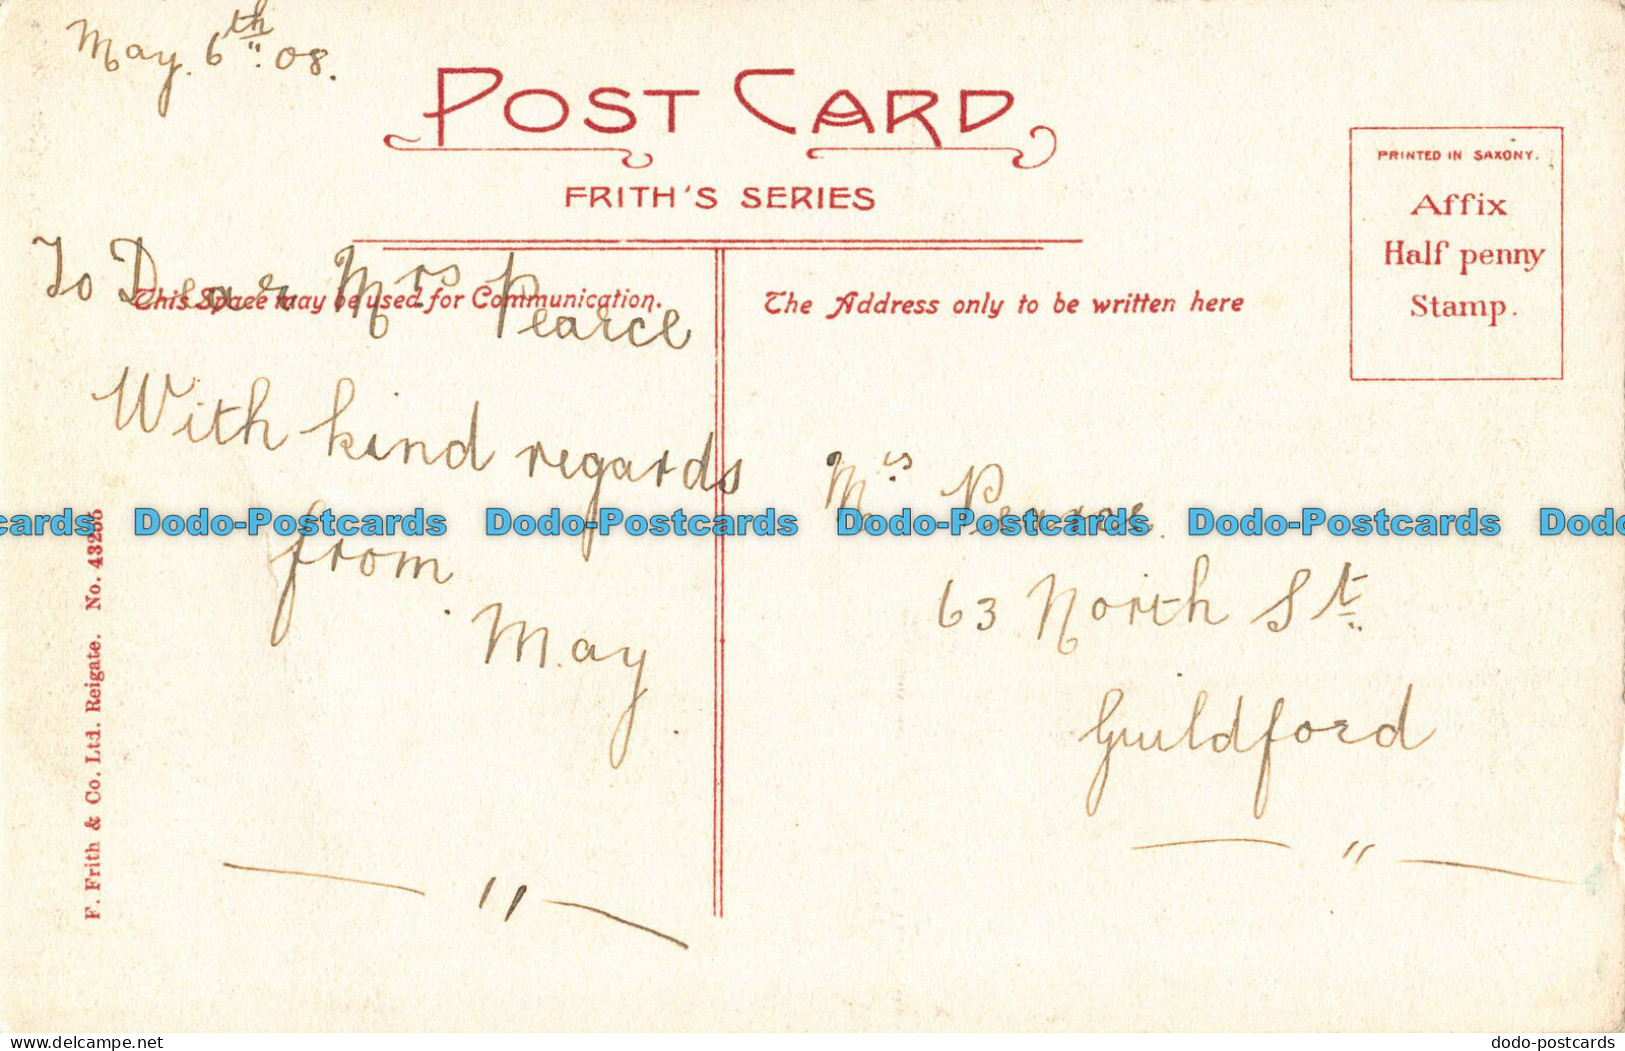 May. 6th 08.
POST CARD
FRITH'S SERIES
PRINTED IN SAXONY.
Affix
Half penny
Stamp.
This Space may be used for Communication.
The Address only to be written here
To Dear Mrs Pearce
With kind regards
from
May.
Mrs Pearce.
63 North St.
Guildford
F. Frith & Co. Ltd. Reigate. No. 43255
Dodo-Postcards Dodo-Postcards Dodo-Postcards Dodo-Postcards
www.delcampe.net
dodo-postcards